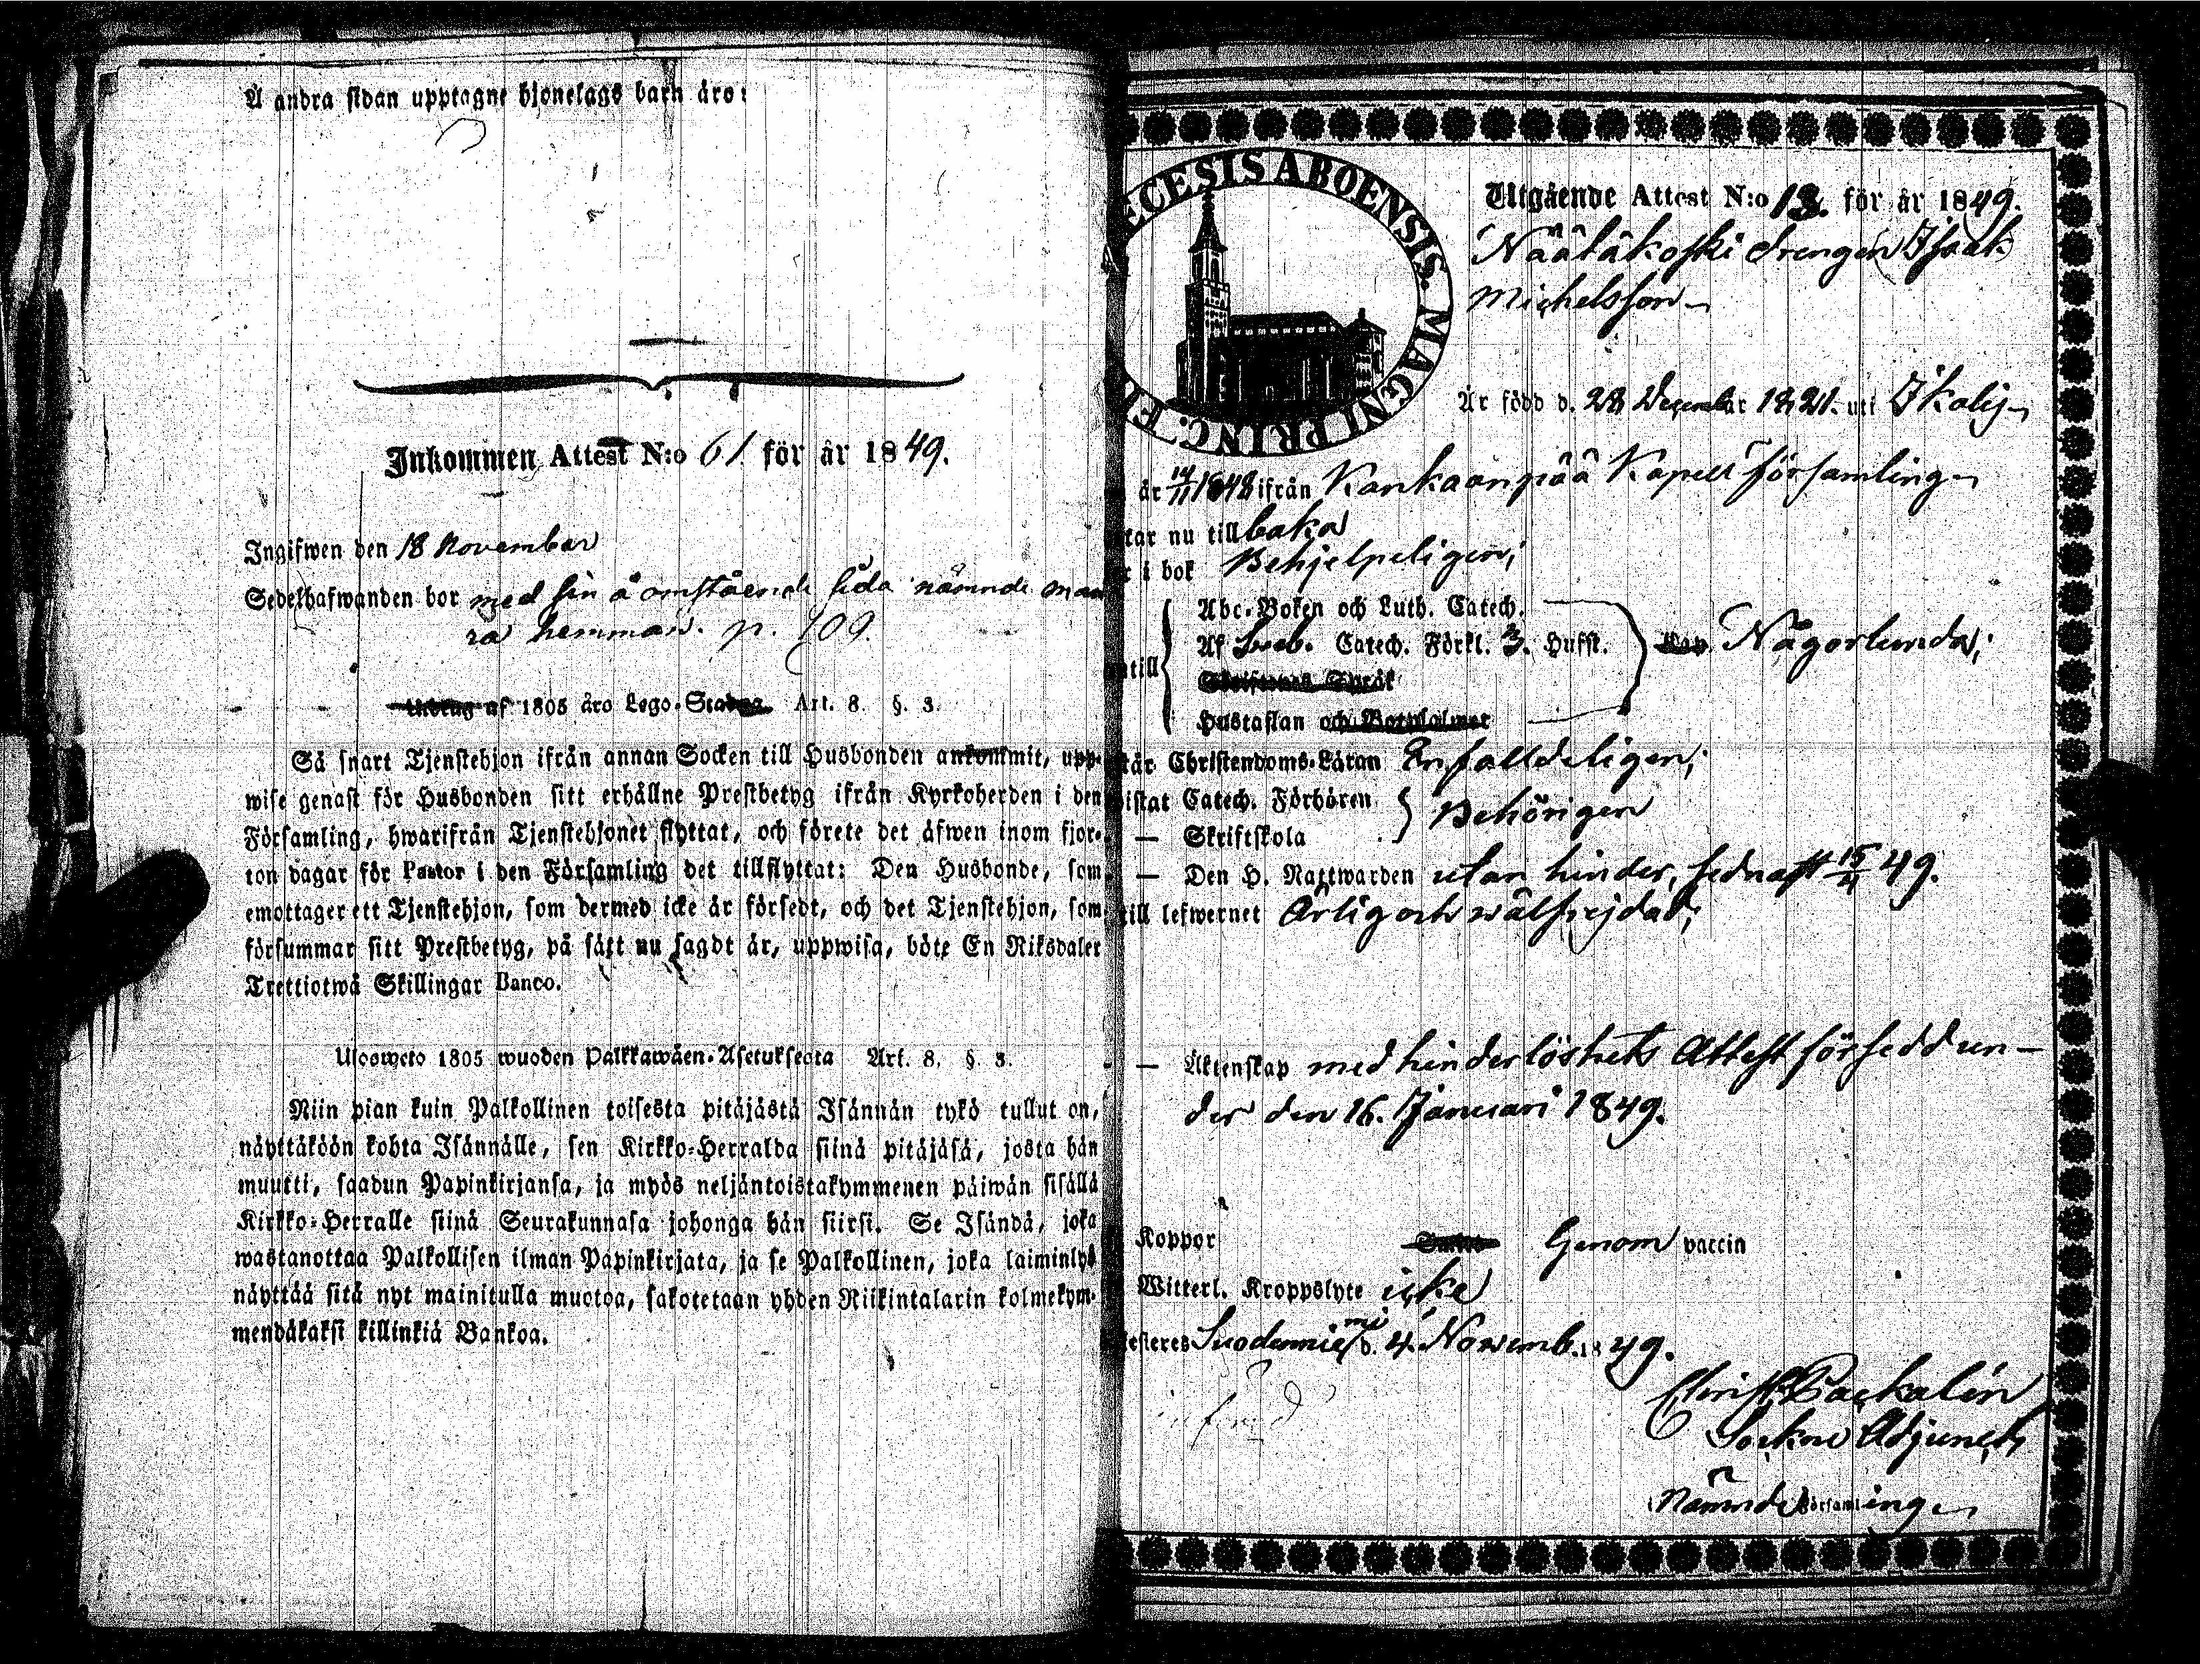 Å andra sidan upptagne hjonelags barn äro:
Inkommen Attest N:o 61 för år 1849.
Ingifwen den 18 November
Sedelhafwanden bor med sin å omstående sida nämnde mau
ra hemman. p. 109.
Utdrag af 1805 års Lego-Stadga Art. 8. §. 3.
Så snart Tjenstehjon ifrån annan Socken till Husbonden ankommit, upp-
wise genast för Husbonden sitt erhållne Prestbetyg ifrån Kyrkoherden i den
Församling, hwarifrån Tjenstehjonet flyttat, och förete det äfwen inom fjor-
ton dagar för Pastor i den Församling det tillflyttat: Den Husbonde, som
emottager ett Tjenstehjon, som dermed icke är försedt, och det Tjenstehjon, som
försummar sitt Prestbetyg, på sätt nu sagdt är, uppwisa, böte En Riksdaler
Trettiotwå Skillingar Banco.
Ulosweto 1805 wuoden Palkkawäen-Asetuksesta Art. 8. §. 3.
Niin pian kuin Palkollinen toisesta pitäjästä Isännän tykö tullut on,
näyttäköön kohta Isännälle, sen Kirkko-Herralda siinä pitäjäsä, josta hän
muutti, saadun Papinkirjansa, ja myös neljäntoistakymmenen päiwän sisällä
Kirkko-Herralle siinä Seurakunnasa johonga hän siirsi. Se Isändä, joka
wastanottaa Palkollisen ilman Papinkirjata, ja se Palkollinen, joka laiminlyö
näyttää sitä nyt mainitulla muotoa, sakotetaan yhden Riikintalarin kolmekym-
mendäkaksi killinkiä Bankoa.
ECESIS ABOENSIS. MAGNI PRINC. F
Utgående Attest N:o 13. för år 1849.
Näätäkoski drengen Isaak
Michelsson
Är född d. 28 December 1821. uti Ikalis
är 14/11 1848 ifrån Kankaanpää Kapell församling
tar nu tillbaka
r i bok Behjelpeligen;
Abc-Boken och Luth. Catech.
Af Sveb. Catech. Förkl. 3. Hufst.
ntill
Skriftenes Språk
Hustaflan och Botpsalmer
Kap Någorlunda;
tår Christendoms-Läran Enfalldeligen;
istat Catech. Förhören
— Skriftskola
Behörigen
— Den H. Nattwarden utan hinder, sednast 15/4 49.
till lefwernet Ärlig och wälfrejdad;
— Äktenskap med hinderlöshets Attest försedd un-
der den 16. Januari 1849.
Koppor Genom vaccin
Witterl. Kroppslyte icke
esteres Suodenniemi d. 4. Novemb. 1849.
Christ. Packalén
Sockne Adjunct,
Nämnde Församling